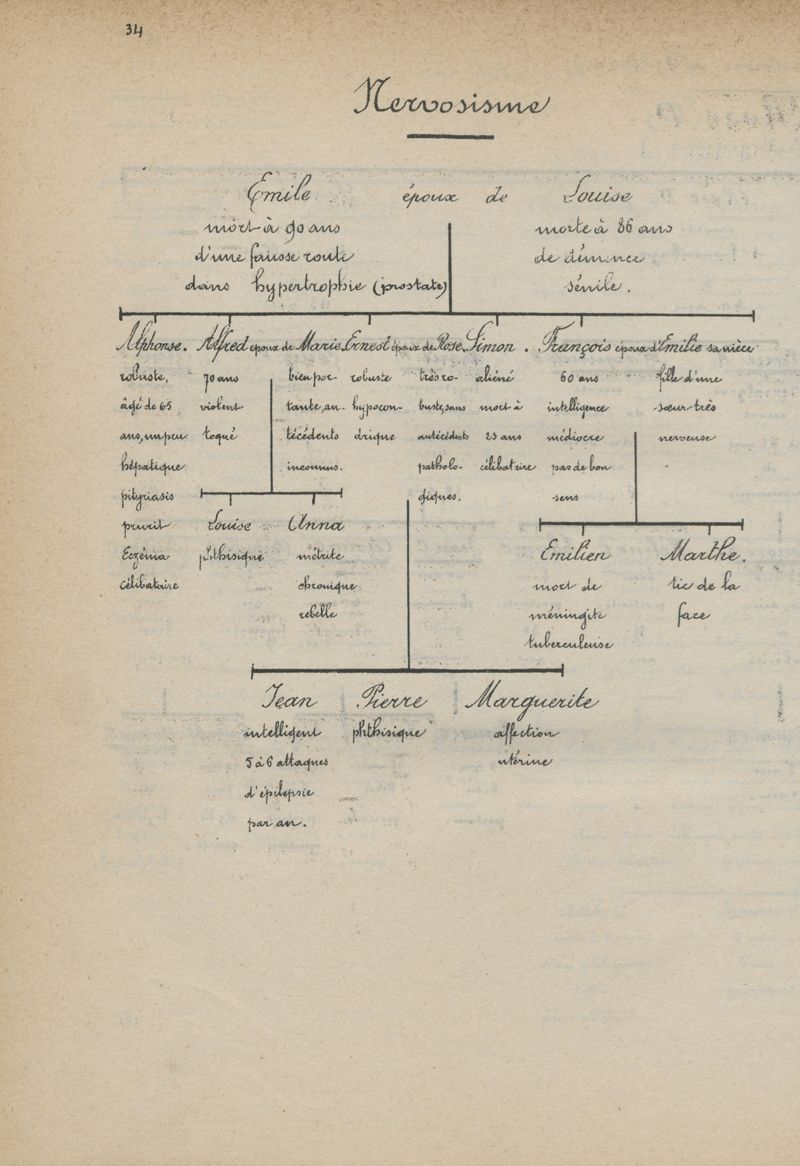 34
Nervosisme
Emile époux de Louise
mort à 90 ans morte à 86 ans
d'une fausse route de démence
dans hypertrophie (prostate) sénile.
Alphonse. Alfred époux de Marie. Ernest époux de Rose. Simon. François époux d'Emilie sa nièce
robuste, 70 ans bien por- robuste très ro- aliéné 60 ans fille d'une
âgé de 65 violent tante, an- hypocon- buste, sans mort à intelligence sœur très
ans, un peu toqué técédents drique antécédents 23 ans médiocre nerveuse
hépatique inconnus. patholo- célibataire pas de bon
pityriasis giques. sens
prurit Louise Anna
Eczéma phthisique métrite Emilien Marthe.
célibataire chronique mort de tic de la
rebelle méningite face
tuberculeuse
Jean Pierre Marguerite
intelligent phthisique affection
5 à 6 attaques utérine
d'épilepsie
par an.